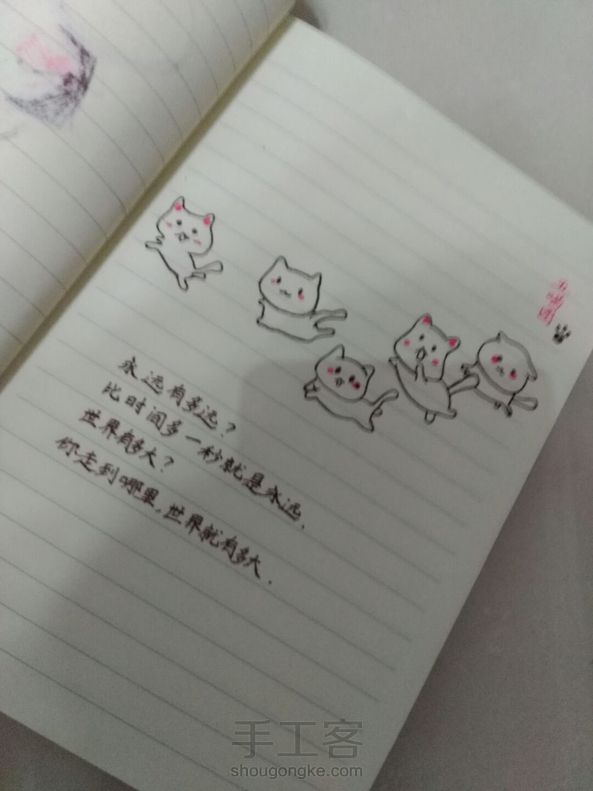 五喵图
永远有多远？
比时间多一秒就是永远.
世界有多大？
你走到哪里,世界就有多大.
手工客
shougongke.com